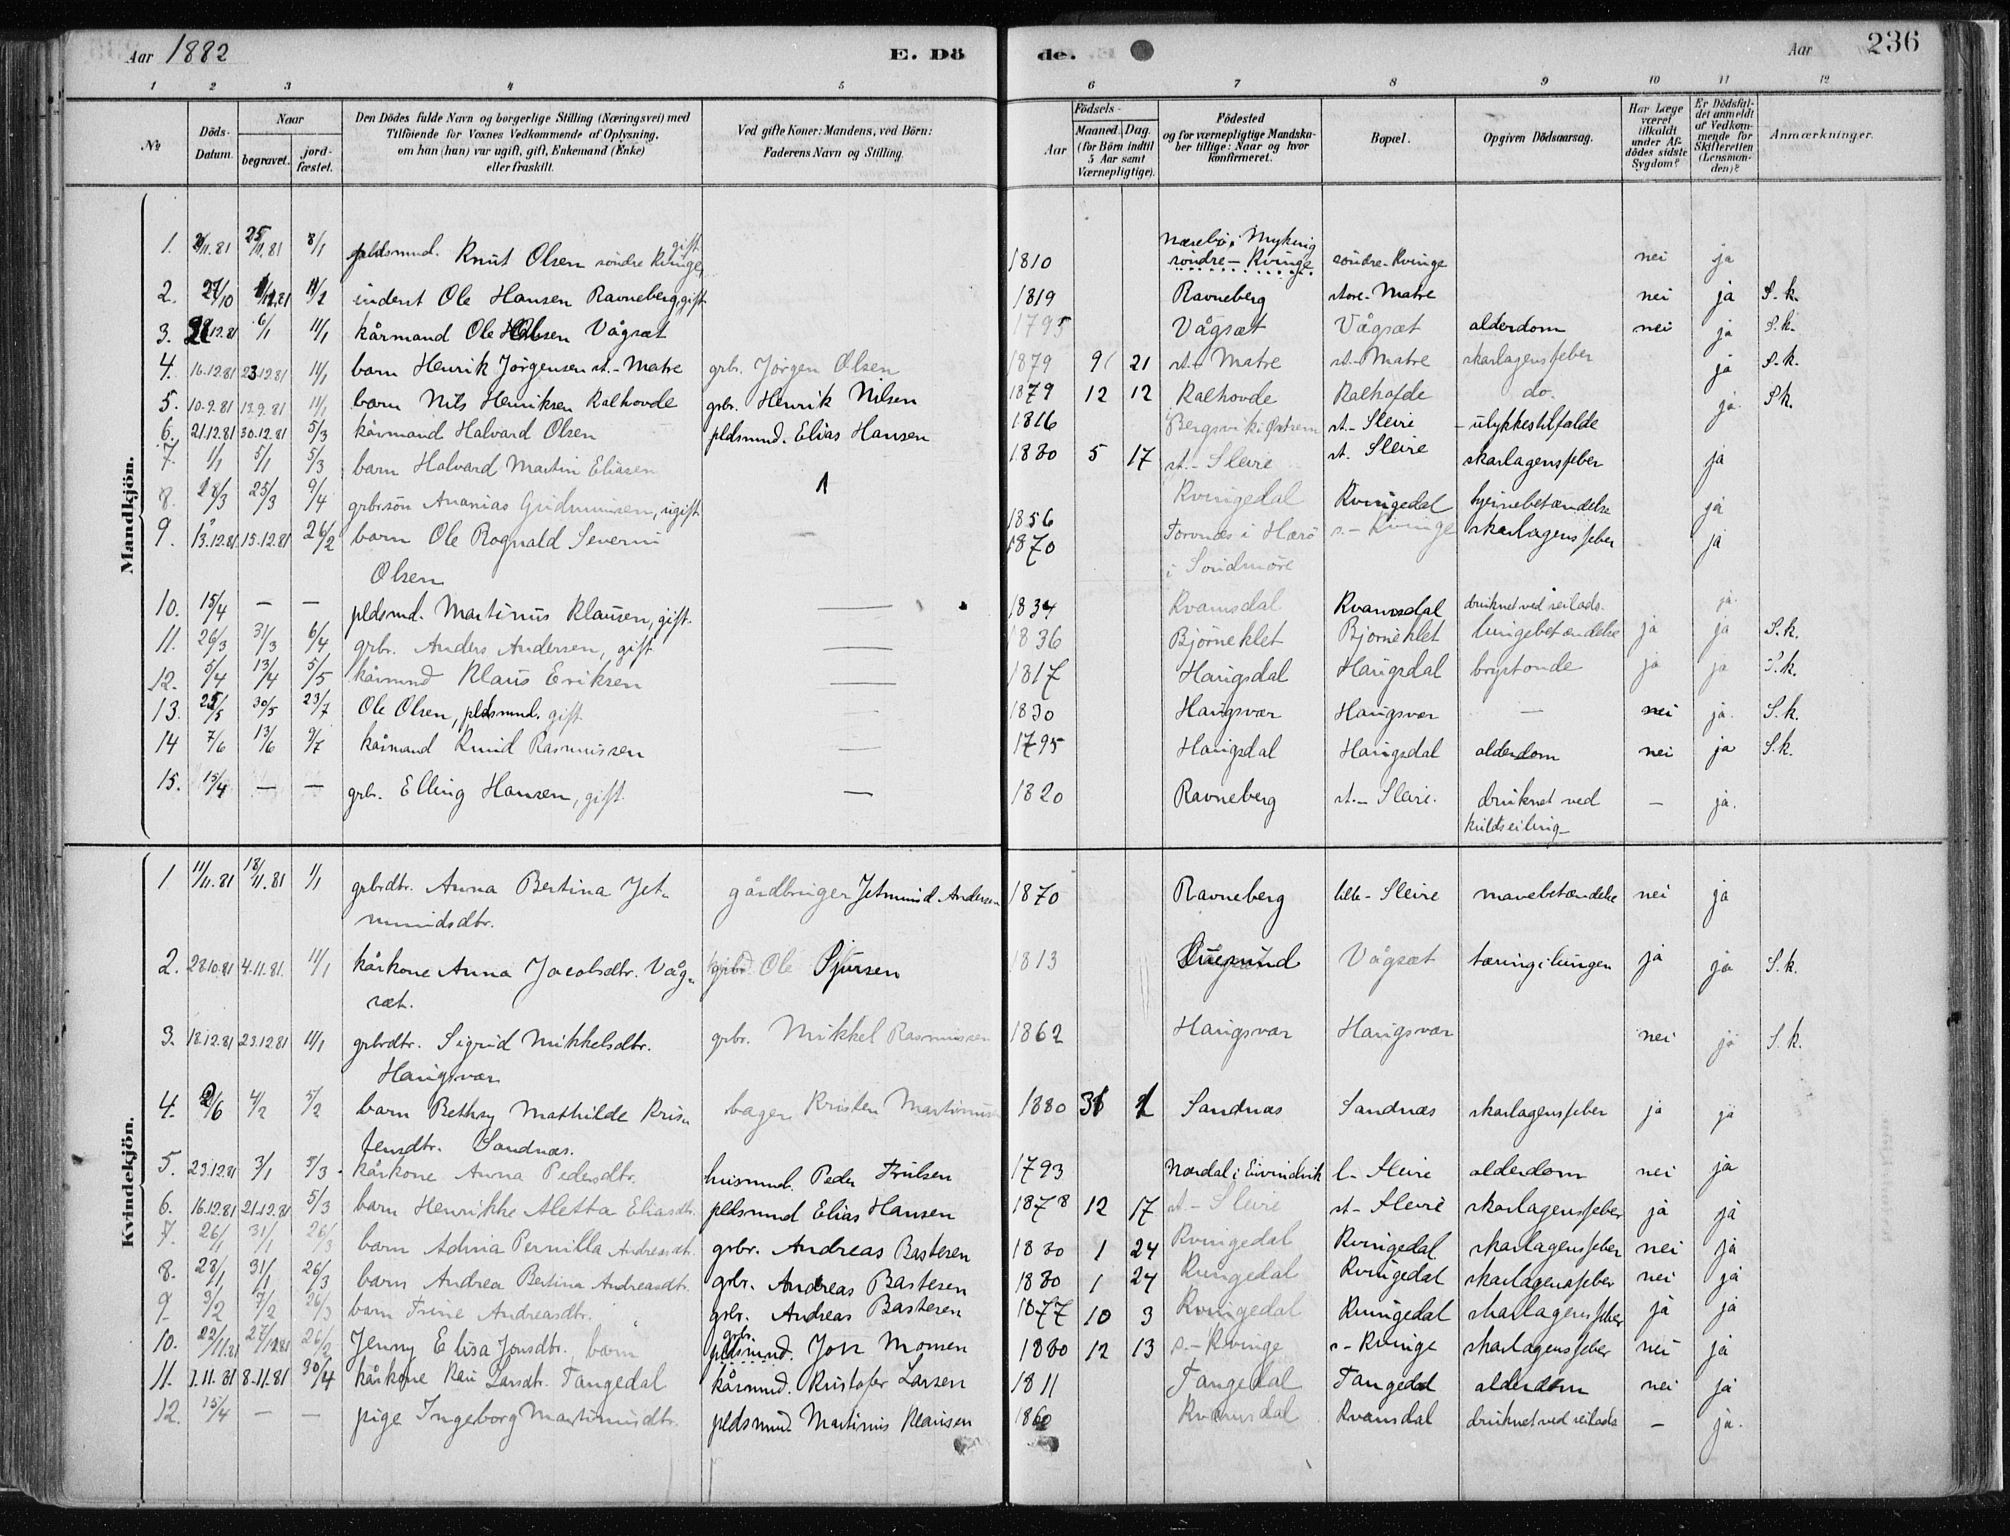 Aar 1882 E. Dö de. Aar 236
1 2 3 4 5 6 7 8 9 10 11 12
№ Döds-Datum. Naar begravet. jord-fæstet. Den Dödes fulde Navn og borgerlige Stilling (Næringsvei) med Tilföiende for Voxnes Vedkommende af Oplysning, om han (hun) var ugift, gift, Enkemand (Enke) eller fraskilt. Ved gifte Koner: Mandens, ved Börn: Faderens Navn og Stilling. Födsels- Aar Maaned. Dag. (for Börn indtil 5 Aar samt Værnepligtige). Födested og for værnepligtige Mandskaber tillige: Naar og hvor konfirmeret. Bopæl. Opgiven Dödsaarsag. Har Læge været tilkaldt under Afdödes sidste Sygdom? Er Dödsfaldet anmeldt af Vedkommende for Skifteretten (Lensmanden)? Anmærkninger.
Mandkjön.
1. 25/11.81 8/1 pldsmnd. Knut Olsen söndre Kvinge, gift 1810 Næsebö i Myking söndre-Kvinge söndre-Kvinge nei ja
2. 27/10 11/2 inderst Ole Hansen Ravneberg, gift 1819 Ravneberg store-Matre nei ja S.k.
3. 6/1 11/1 kårmand Ole Olsen Vågsæt 1795 Vågsæt Vågsæt alderdom nei ja S.k.
4. 16.12.81 23.12.81 11/1 barn Henrik Jörgensen st.-Matre grbr. Jörgen Olsen 1879 9 21 st-Matre st-Matre skarlagensfeber ja S.k.
5. 10.9.81 12.9.81 11/1 barn Nils Henriksen Kalhovde grbr. Henrik Nilsen 1879 12 12 Kalhovde Kalhovde do. ja S.k.
6. 21.12.81 30.12.81 5/3 kårmand Halvard Olsen pldsmnd. Elias Hansen 1816 st.-Sleire ulykkestilfælde
7. 1/1 5/1 5/3 barn Halvard Martin Eliasen 1880 5 17 st.-Sleire st. Sleire skarlagensfeber ja
8. 18/3 25/3 9/4 grbrsön Ananias Gudmunsen, ugift 1856 Kvingedal Kvingedal hjernebetændelse ja
9. 13.12.81 15.12.81 26/2 barn Ole Rognald Severin — 1870 s.-Kvinge skarlagensfeber ja
Olsen i Söndmöre
10. 15/4 — — pldsmd. Martinus Klausen, gift. — 1834 Kvamsdal Kvamsdal druknet ved seilads. ja
11. 26/3 31/3 6/4 grbr. Anders Andersen, gift — 1836 Björneklet Björneklet lungebetændelse ja ja S.k.
12. 5/4 13/4 5/5 kårmnd Klaus Eriksen — 1817 Haugsdal Haugsdal brystonde ja ja S.k.
13. 25/5 30/5 23/7 Ole Olsen, pldsmnd. gift — 1830 Haugsvær Haugsvær — nei ja S.k.
14 7/6 13/6 9/7 kårmand Knud Rasmussen — 1795 Haugsdal Haugsdal alderdom nei ja S.k.
15. 15/4 — — grbr. Elling Hansen, gift — 1820 Ravneberg st.-Sleire. druknet ved — ja.
kuldseiling
Kvindekjön.
1 11/11.81 18/11.81 1/1 grbrdtr. Anna Bertina Jet- gårdbruger Jetmund Andersen 1870 Ravneberg lille-Sleire mavebetændelse nei ja
mundsdtr.
2. 28.10.81 4.11.81. 11/1 kårkone Anna Jacobsdtr. Våg- Ole Sjursen 1813 Vågsæt tæring i lungen ja ja S.k.
sæt.
3. 18.12.81 23.12.81 11/1 grbrdtr. Sigrid Mikkelsdtr. grbr. Mikkel Rasmussen 1862 Haugsvær Haugsvær nei ja S.k.
Haugsvær
4. 4/2 5/2 barn Bethsy Mathilde Kris- bager Kristen Martinusen 1880 Sandnæs Sandnæs skarlagensfeber ja ja
tensdtr. Sandnæs.
5. 23.12.81 3/1 5/3 kårkone Anna Pedersdtr. husmnd. Peder 1793 Nordal i Eivindvik l-Sleire alderdom nei ja
6. 16.12.81 21.12.81 5/3 barn Henrikke Aletta Eliasdtr. pldsmnd Elias Hansen 1878 12 17 st-Sleire st-Sleire skarlagensfeber ja ja
7. 26/1 31/1 26/3 barn Adina Pernilla Andreasdtr. grbr. Andreas Bastesen 1880 1 24 Kvingedal Kvingedal skarlagensfeber nei ja
8. 28/1 31/1 26/3 barn Andrea Bertina Andreasdtr. grbr. Andreas Bastesen 1880 1 24 Kvingedal Kvingedal skarlagensfeber nei ja
9 3/2 7/2 26/3 barn Trine Andreasdtr. grbr. Andreas Bastesen 1877 10 3 Kvingedal Kvingedal skarlagensfeber ja ja
10. 22/11.81 26/2 Jenny Elisa Jonsdtr. barn grbr. pldsmnd. Jon Monsen 1880 12 13 s.-Kvinge s-Kvinge skarlagensfeber nei ja
11. 1.11.81 8.11.81 30/4 kårkone Kari Larsdtr. Tangedal kårmnd. Kristofer Larsen 1811 Tangedal Tangedal alderdom nei ja
12. 15/4 — — pige Ingeborg Martinusdtr. pldsmnd. Martinus Klausen 1860 Kvamsdal Kvamsdal druknet ved seilads — ja.